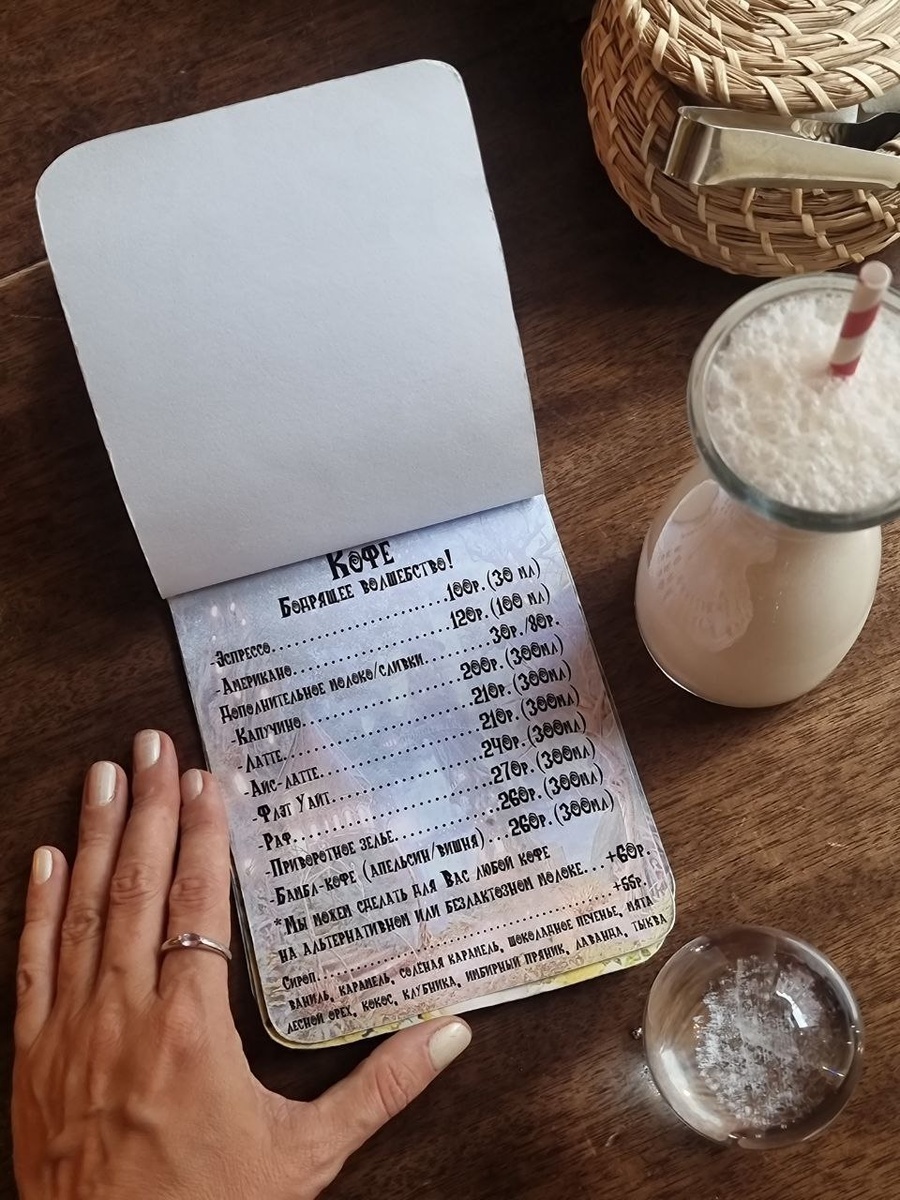 Кофе
Бодрящее волшебство!
-Эспрессо..........................100р.(30 мл)
-Американо........................120р.(100 мл)
Дополнительное молоко/сливки........30р./80р.
-Капучино..........................200р.(300мл)
-Латте.............................210р.(300мл)
-Айс-латте.........................210р.(300мл)
-Флэт Уайт.........................240р.(300мл)
-Раф...............................270р.(300мл)
-Приворотное зелье.................260р.(300мл)
-Бамбл-кофе (апельсин/вишня)...260р.(300мл)
*Мы можем сделать для Вас любой кофе
на альтернативном или безлактозном молоке...+60р.
Сироп..........................................+55р.
ваниль, карамель, солёная карамель, шоколадное печенье, мята
лесной орех, кокос, клубника, имбирный пряник, лаванда, тыква